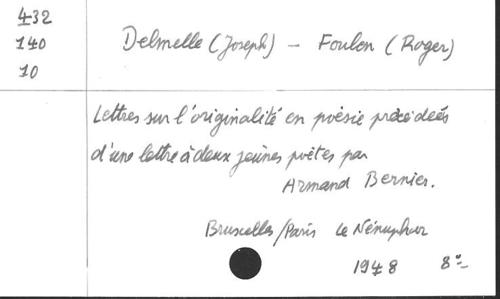 432
140
10
Delmelle (Joseph) - Foulon (Roger)
Lettres sur l'originalité en poésie précédées
d'une lettre à deux jeunes poètes par
Armand Bernier.
Bruxelles/Paris Le Nénuphar
1948 8°-